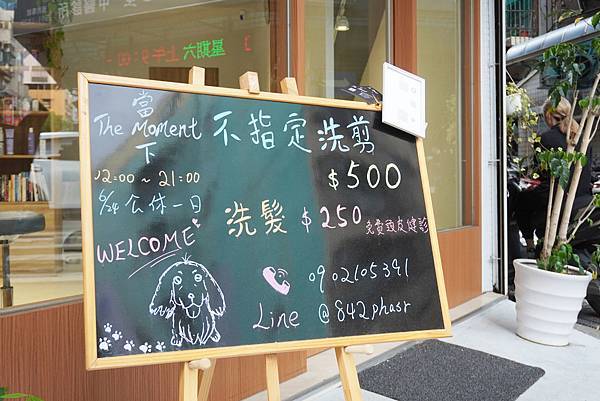 星期六 上午9:00-
當
The Moment
下
12:00~21:00
6/24 公休一日
WELCOME
不指定洗剪
$500
洗髮 $250
免費頭皮健診
0902105391
Line @842phasr